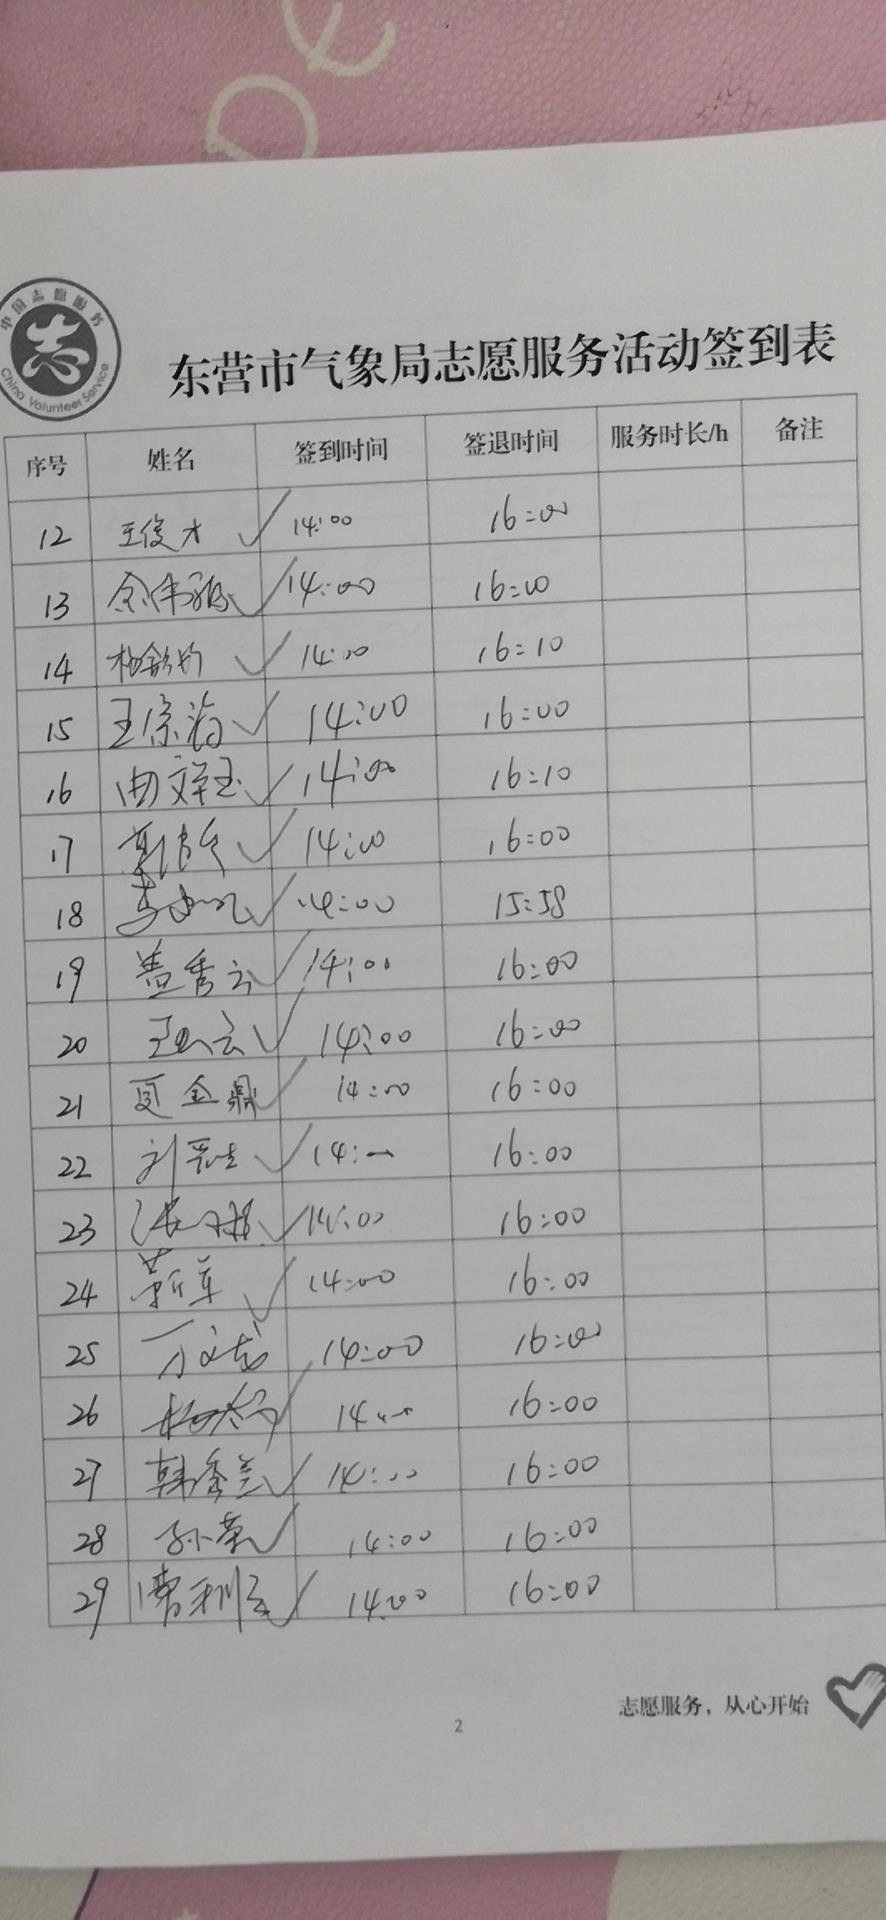 中国志愿服务
志
China Volunteer Service
东营市气象局志愿服务活动签到表
序号 姓名 签到时间 签退时间 服务时长/h 备注
12 王俊才 ✓ 14:00 16:00
13 ✓ 14:00 16:00
14 ✓ 14:00 16:10
15 ✓ 14:00 16:00
16 ✓ 14:00 16:10
17 ✓ 14:00 16:00
18 ✓ 14:00 15:58
19 盖秀云 ✓ 14:00 16:00
20 ✓ 14:00 16:00
21 夏金鼎 ✓ 14:00 16:00
22 ✓ 14:00 16:00
23 ✓ 14:00 16:00
24 ✓ 14:00 16:00
25 万文龙 14:00 16:00
26 ✓ 14:00 16:00
27 韩秀兰 ✓ 14:00 16:00
28 孙荣 ✓ 14:00 16:00
29 ✓ 14:00 16:00
志愿服务，从心开始
2